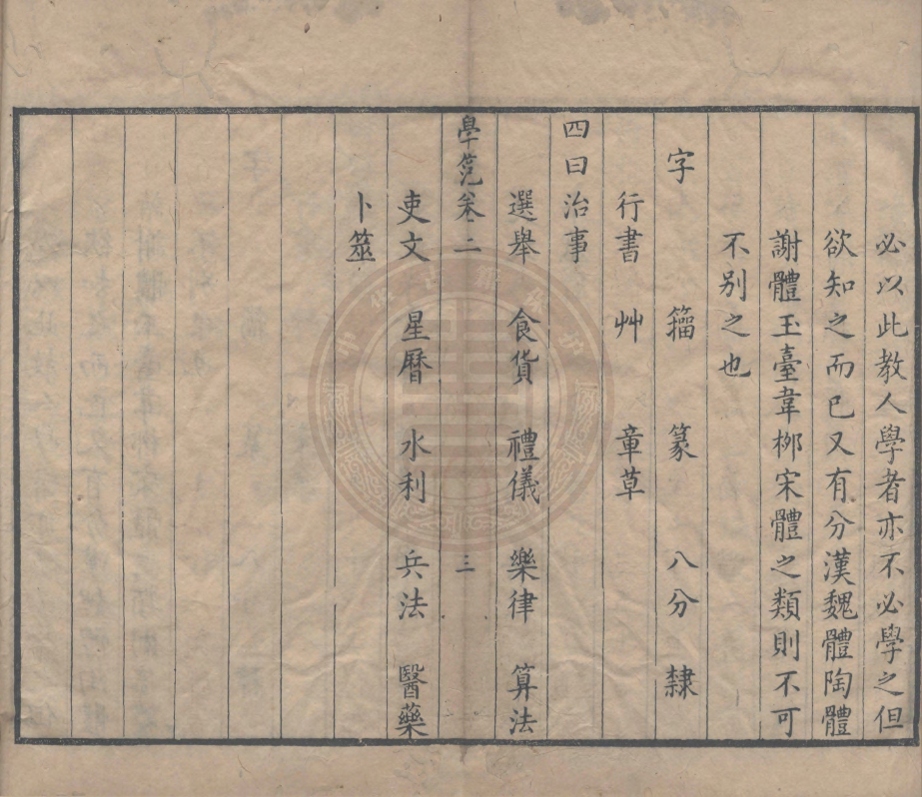 必以此教人學者亦不必學之但
欲知之而已又有分漢魏體陶體
謝體玉臺韋柳宋體之類則不可
不別之也
字 籀 篆 八分 隸
行書 艸 章草
四曰治事
選舉 食貨 禮儀 樂律 算法
學範卷二 三
吏文 星曆 水利 兵法 醫藥
卜筮